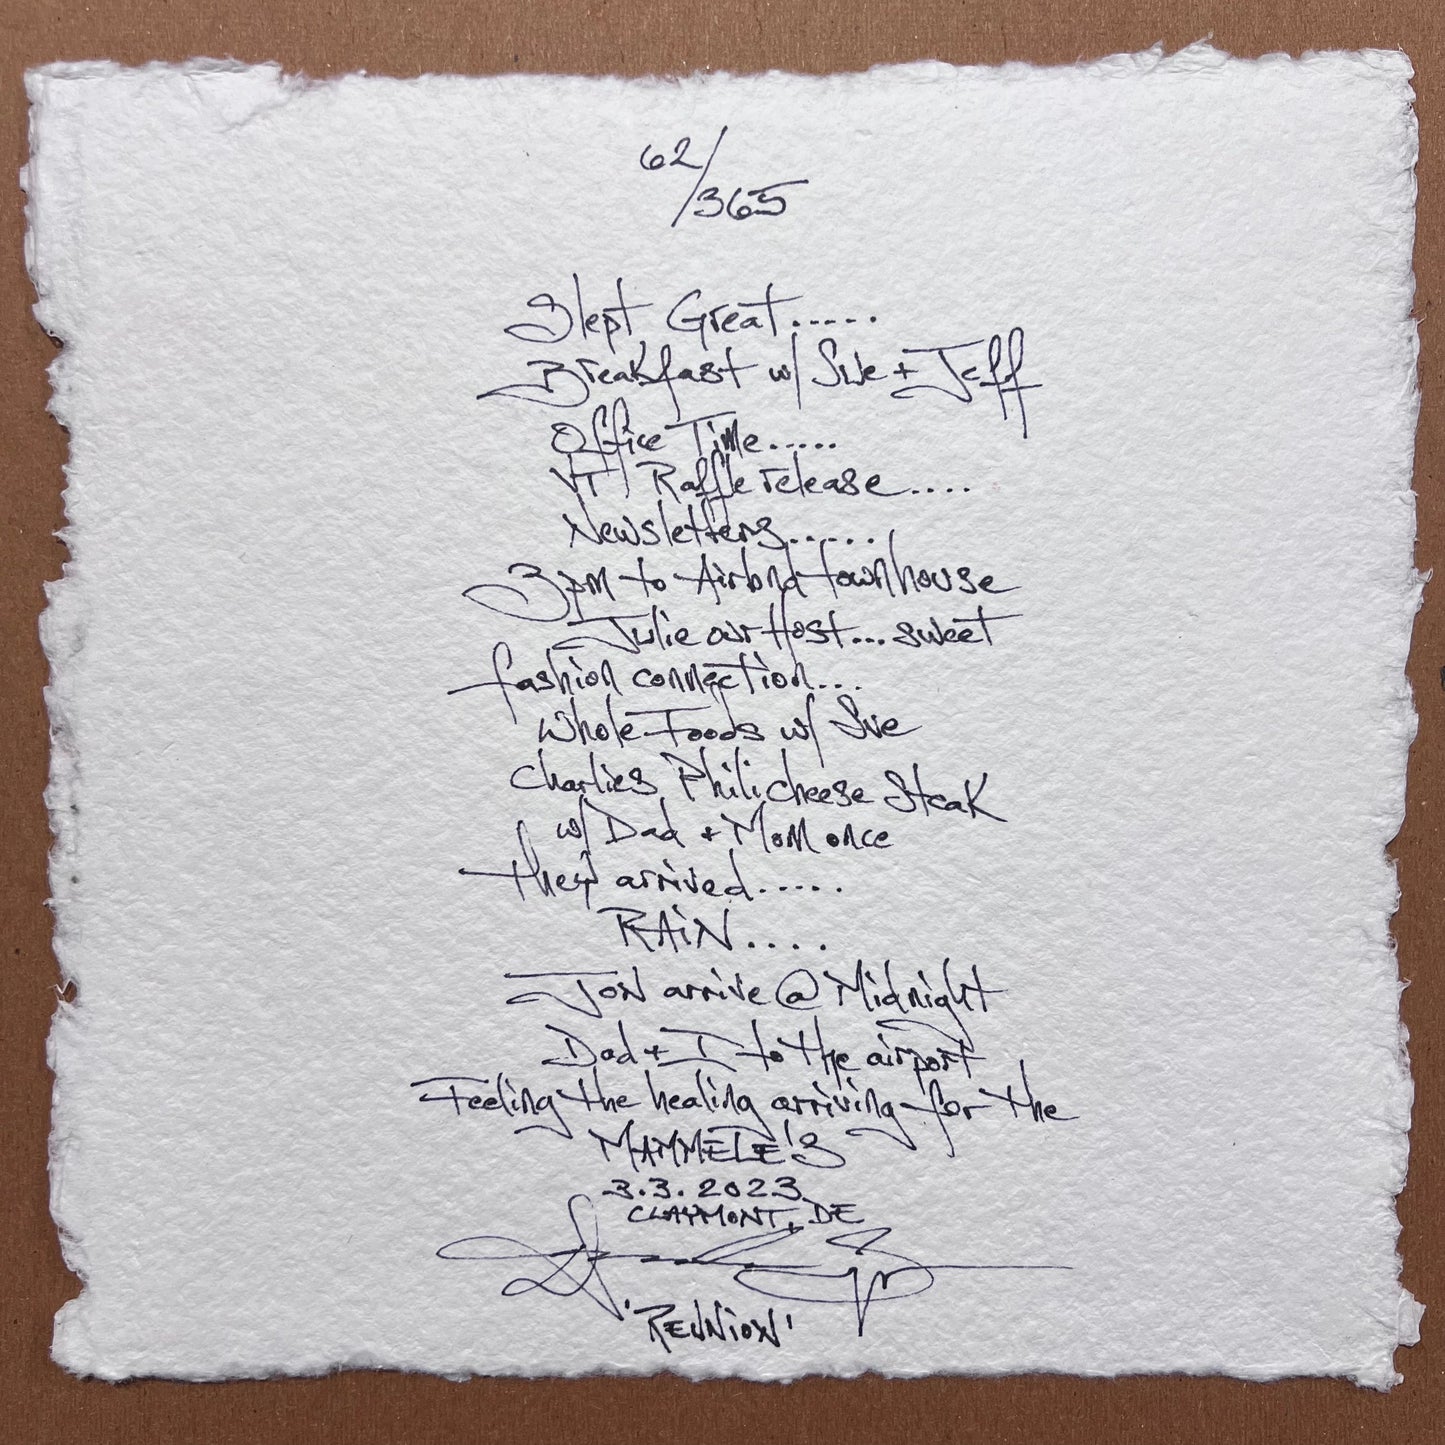 62/365
Slept Great.....
Breakfast w/ Sue + Jeff
Office Time.....
VT Raffle release....
Newsletters......
3pm to Airbnd townhouse
Julie our Host... sweet
fashion connection...
Whole Foods w/ Sue
Charlies Phili cheese Steak
w/ Dad + Mom once
they arrived.....
RAiN....
Jon arrive @ Midnight
Dad + I to the airport
Feeling the healing arriving for the
MAMMELE'S
3.3.2023
CLAYMONT, DE
'REUNiON'